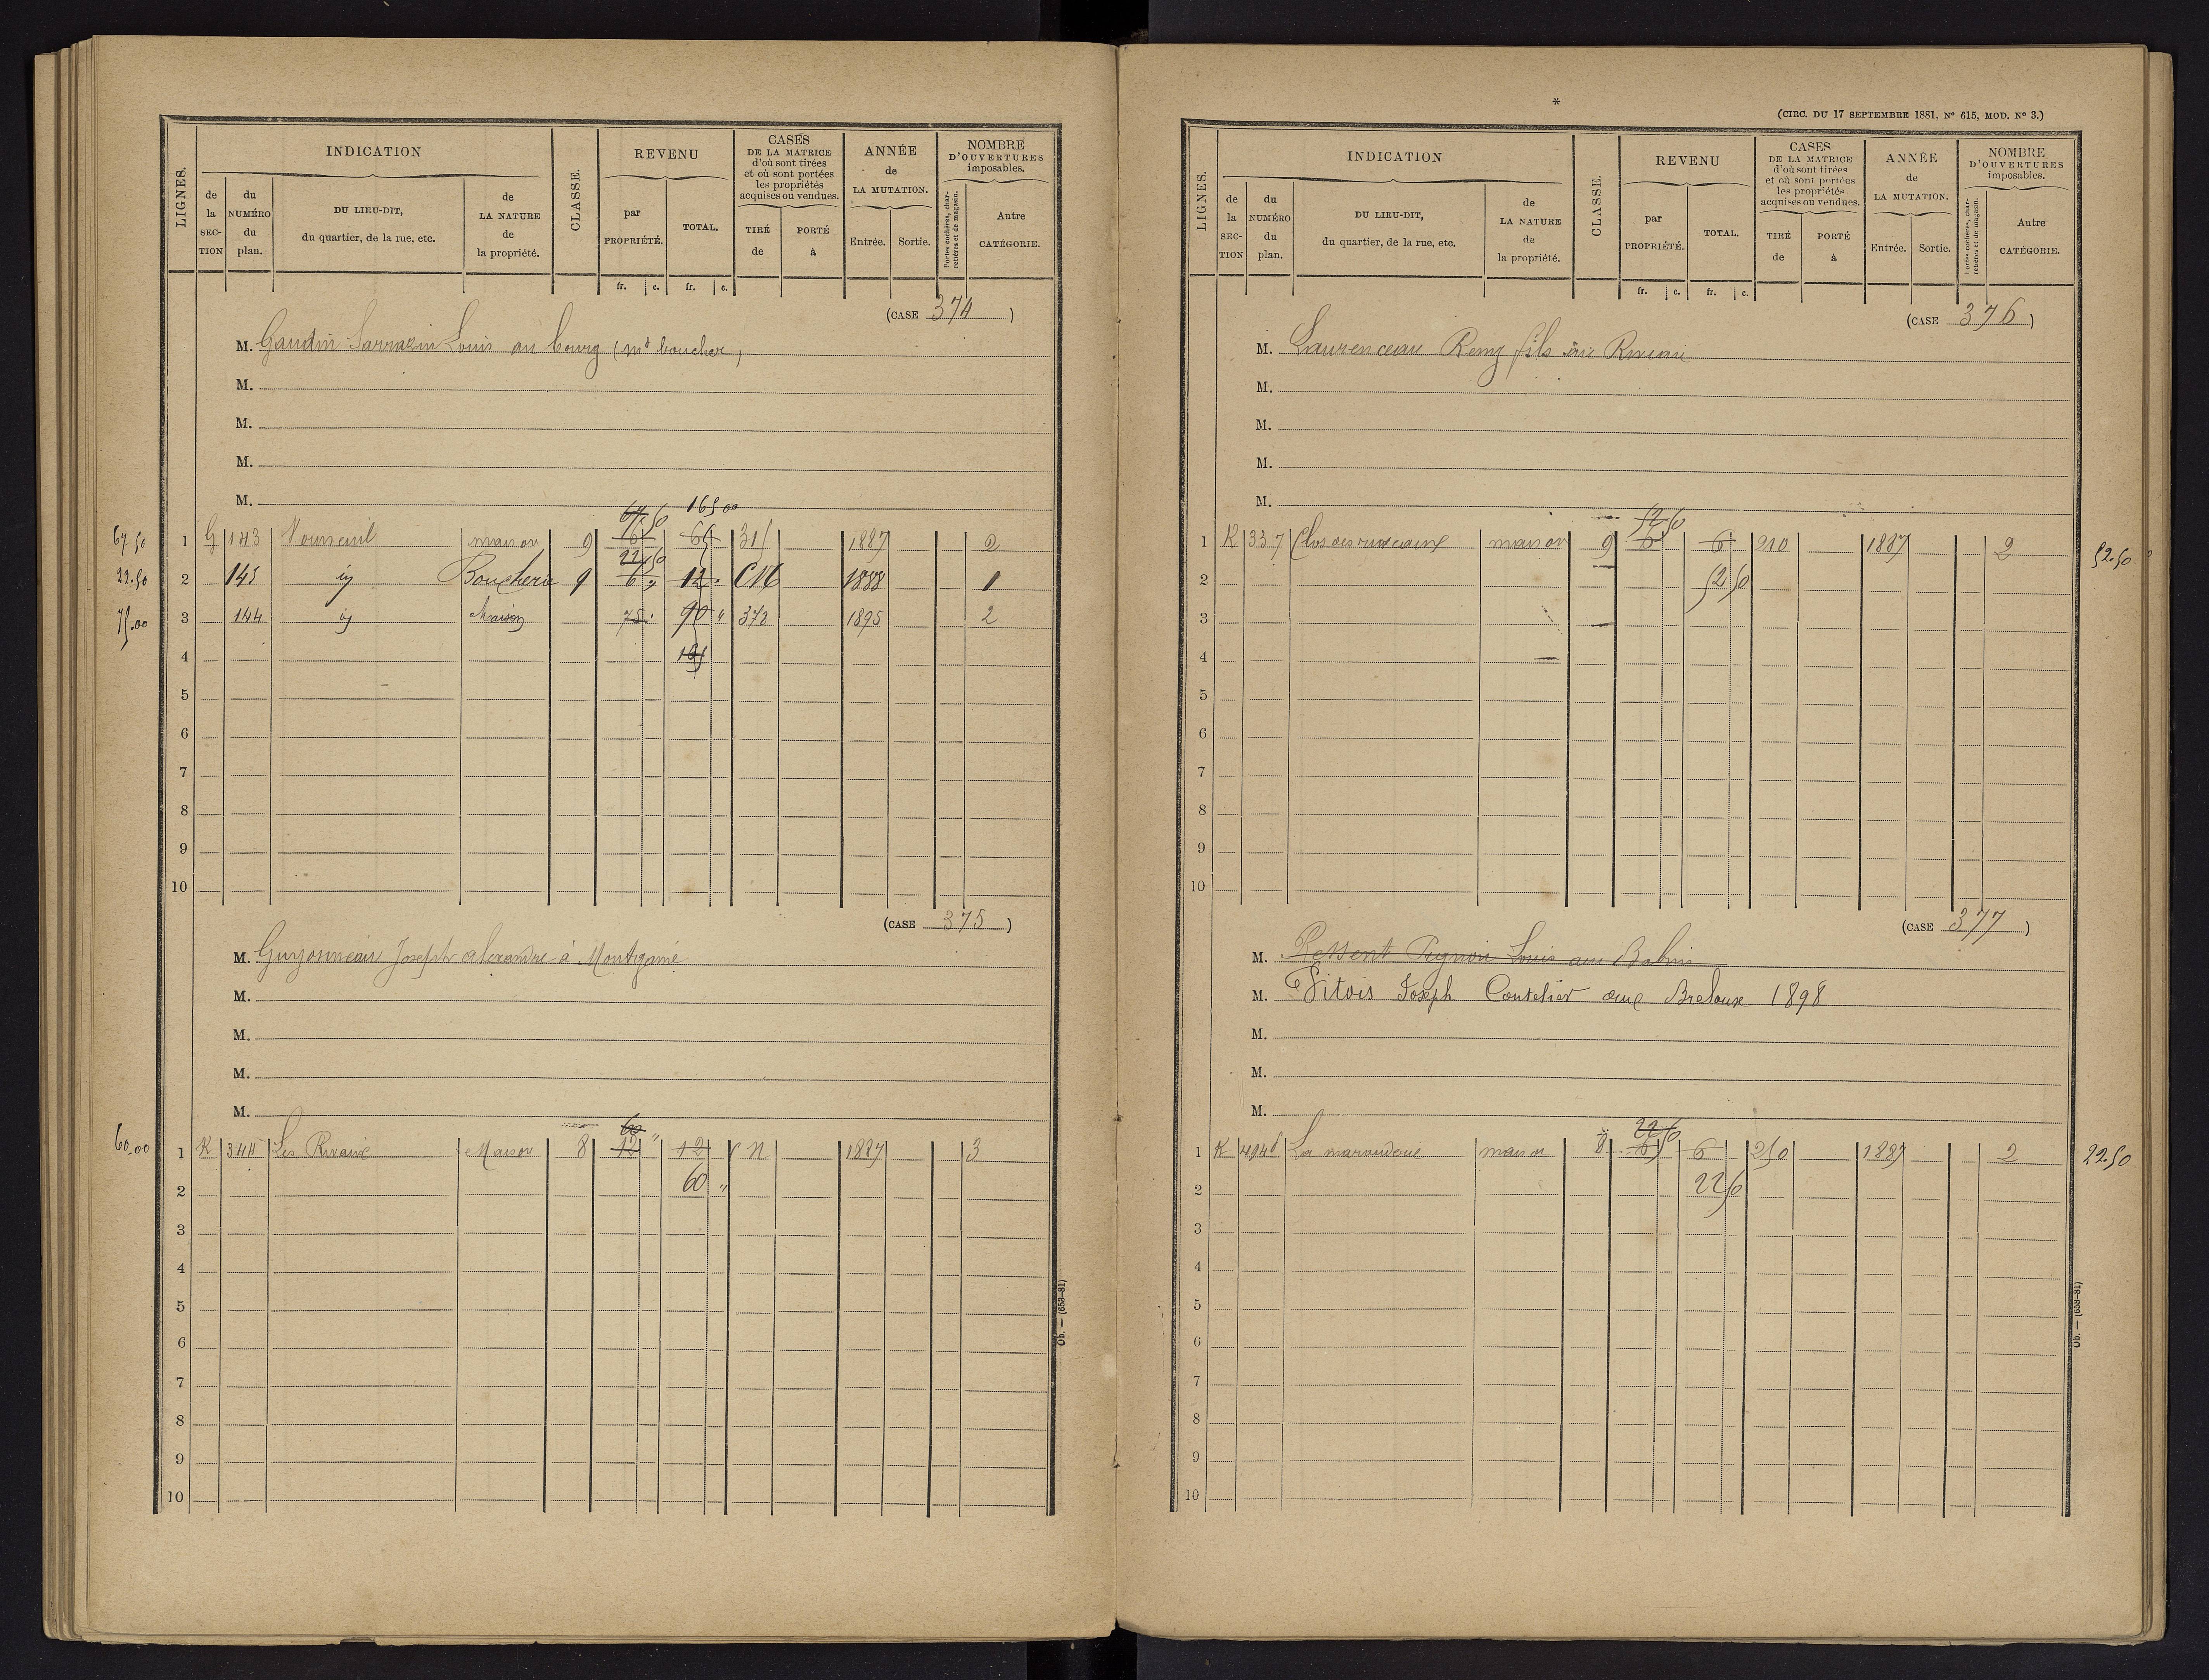 LIGNES.
INDICATION
de la SECTION
du NUMÉRO du plan.
DU LIEU-DIT, du quartier, de la rue, etc.
de LA NATURE de la propriété.
CLASSE.
REVENU
par PROPRIÉTÉ.
TOTAL.
fr. c. fr. c.
CASES DE LA MATRICE d'où sont tirées et où sont portées les propriétés acquises ou vendues.
TIRÉ de
PORTÉ à
ANNÉE de LA MUTATION.
Entrée. Sortie.
NOMBRE D'OUVERTURES imposables.
Portes cochères, charretières et de magasin.
Autre CATÉGORIE.
(CASE 374)
M. Gaudin Sarrazin Louis au bourg (md boucher)
M.
M.
M.
M.
67.50 165 00
67 50 1 G 143 maison 9 6 31 1887 2
22 50
22.50 2 145 Boucherie 9 6 " 12 " CN 1888 1
75.00 3 144 Maison 75 90 " 373 1895 2
4 165
5
6
7
8
9
10
(CASE 375)
M. Guyonneau Joseph alexandre à Montgamé
M.
M.
M.
M.
60
60.00 1 K 344 Les Rivaux Maison 8 12 " 12 N 1887 3
2 60 "
3
4
5
6
7
8
9
10
Ob. — (653-81)
*
(CIRC. DU 17 SEPTEMBRE 1881, N° 615, MOD. N° 3.)
LIGNES.
INDICATION
de la SECTION
du NUMÉRO du plan.
DU LIEU-DIT, du quartier, de la rue, etc.
de LA NATURE de la propriété.
CLASSE.
REVENU
par PROPRIÉTÉ.
TOTAL.
fr. c. fr. c.
CASES DE LA MATRICE d'où sont tirées et où sont portées les propriétés acquises ou vendues.
TIRÉ de
PORTÉ à
ANNÉE de LA MUTATION.
Entrée. Sortie.
NOMBRE D'OUVERTURES imposables.
Portes cochères, charretières et de magasin.
Autre CATÉGORIE.
(CASE 376)
M. Laurenceau Remy fils
M.
M.
M.
M.
52 50
1 K 337 Clos des maison 9 6 6 210 1887 2 52.50
2 52 50
3
4
5
6
7
8
9
10
(CASE 377)
M. Louis aux Babins
M. Vitois Joseph Coutelier aux Breloux 1898
M.
M.
M.
22 50
1 K La marauderie maison 8 6 6 250 1887 2 22.50
2 22 50
3
4
5
6
7
8
9
10
Ob. — (653-81)